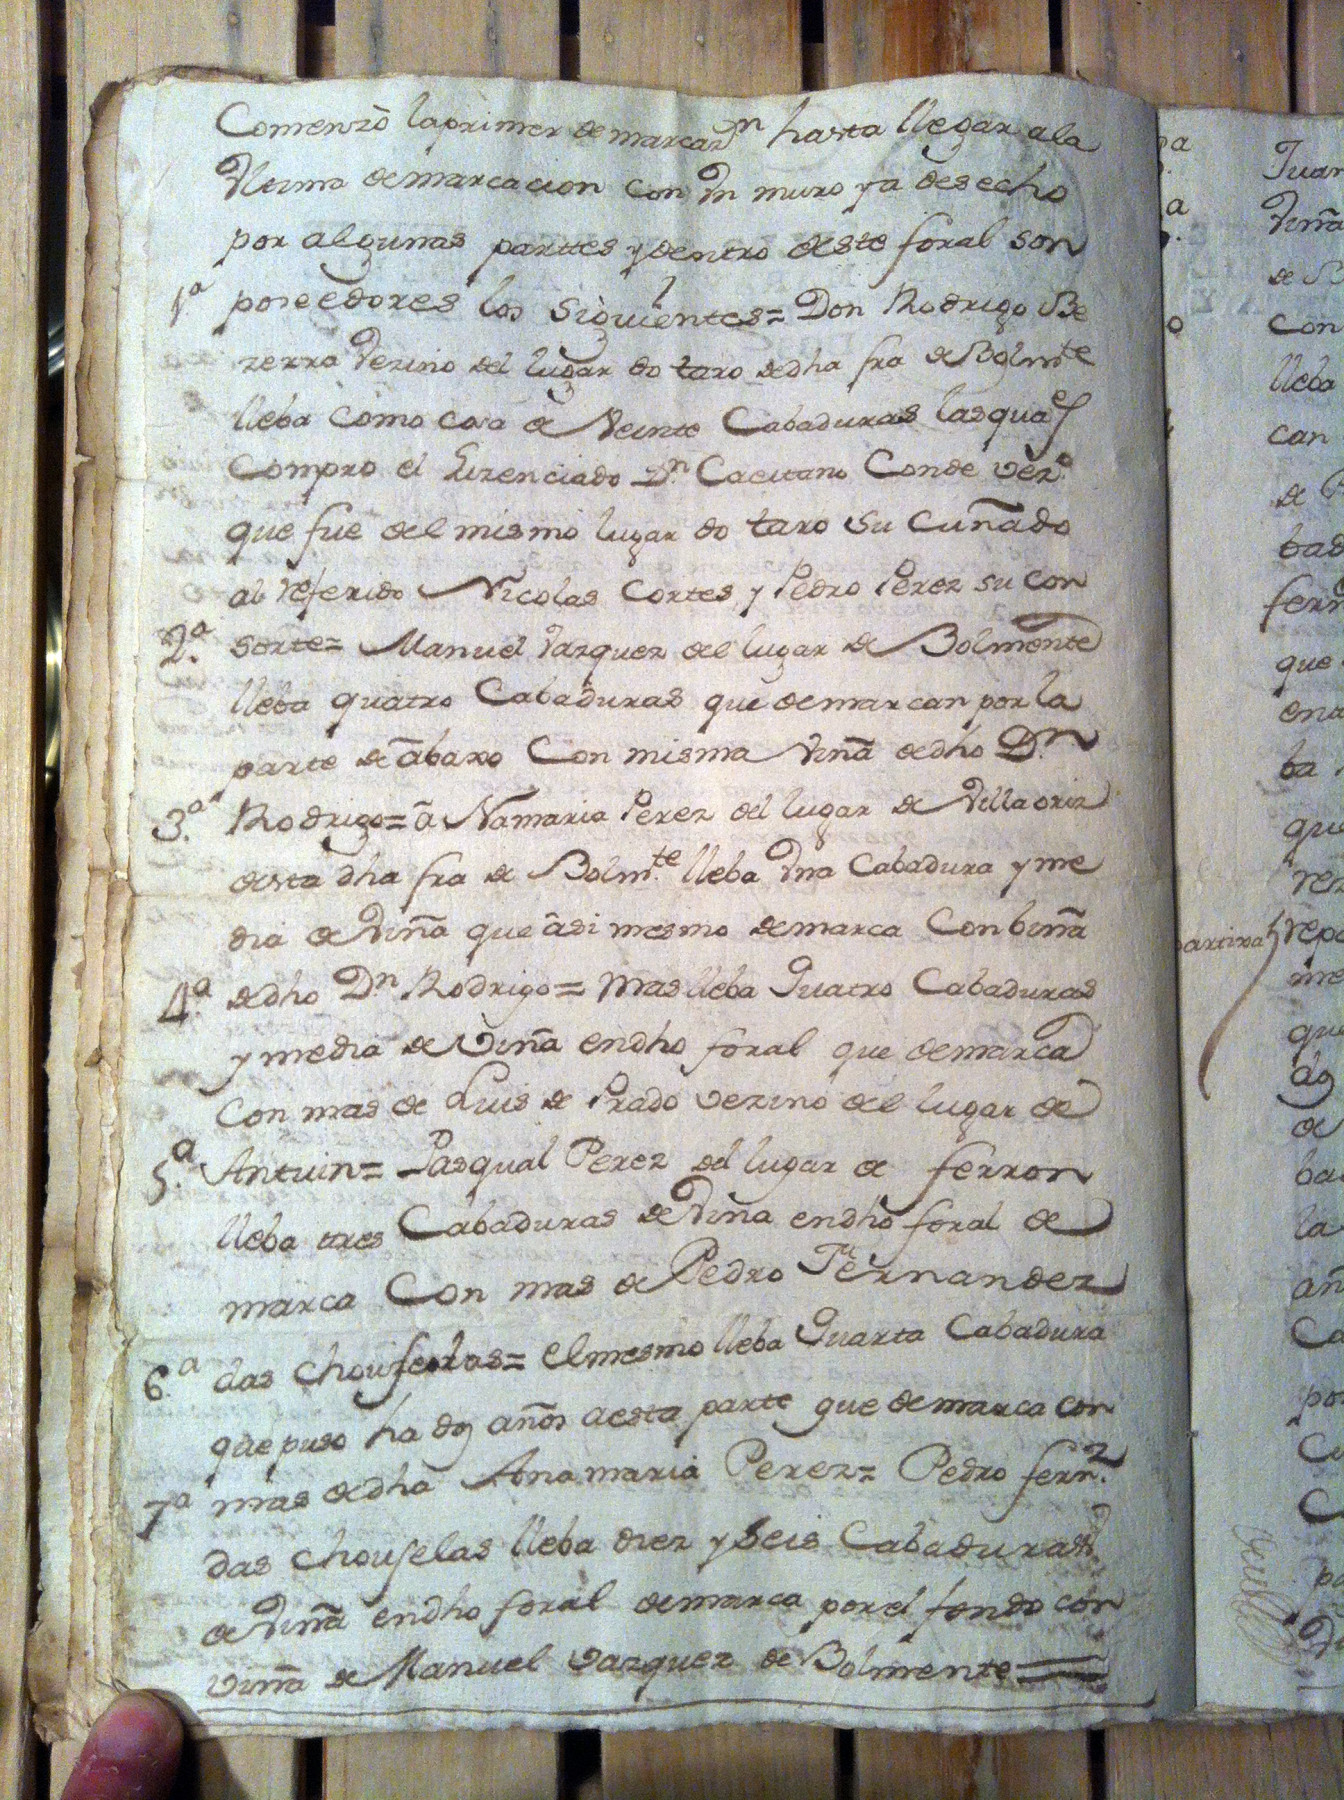 Comenzò la primer demarcazn hasta llegar ala
Vltima demarcacion con Vn muro ya desecho
por algunas parttes y dentro deste foral son
1ª poseedores los siguientes= Don Rodrigo Be
zerra Vezino del lugar do taro de dha fra de Bolmte
lleba como cosa de Veinte Cabaduras las quaes
Compro el Lizenciado Dn. Caeitano Conde vezº
que fue del mismo lugar do taro su Cuñado
al referido Nicolas Cortes y Pedro Perez su con
2ª sorte= Manuel Vazquez del lugar de Bolmente
lleba quatro Cabaduras que demarcan por la
parte de abaxo Con misma Viña de dho Dn
3ª Rodrigo= a Namaria Perez del lugar de Villaoriz
desta dha fra de Bolmte lleba Vna Cabadura y me
dia de Viña que asi mesmo demarca Con biña
4ª de dho Dn Rodrigo= mas lleba Quatro Cabaduras
y media de Viña en dho foral que demarca
Con mas de Luis de Prado vezino del lugar de
5ª Antuin= Pasqual Perez del lugar de ferron
lleba tres Cabaduras de Viña en dho foral de
marca Con mas de Pedro Fernandez
6ª das Chouselas= el mesmo lleba Quarta Cabadura
que puso ha dos años a esta parte que demarca con
7ª mas de dha Anamaria Perez= Pedro fernz
das Chouselas lleba diez y seis Cabaduras
de Viña en dho foral demarca por el fondo con
viña de Manuel vazquez de Bolmente=
Viña
Con
lleba
can
que
que
la